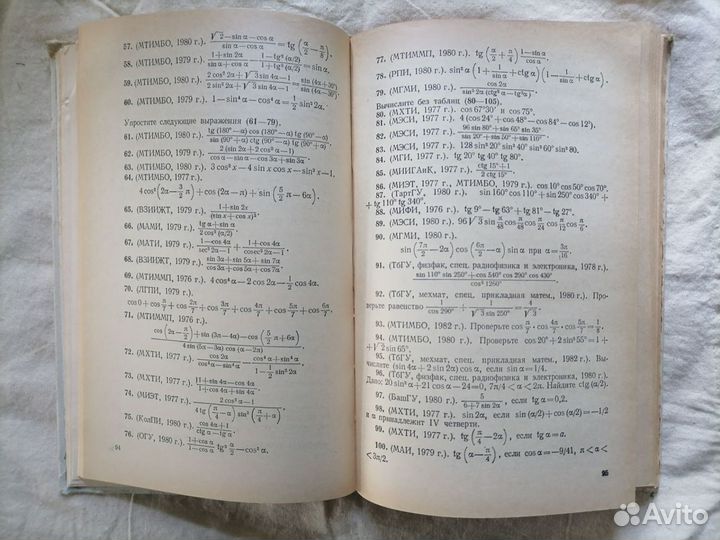 57. (МТИМБО, 1980 г.). (√2−sin α−cos α)/(sin α−cos α) = tg (α/2 − π/8).
58. (МТИМБО, 1979 г.). (1+sin 2α)/(sin α+cos α) − (1−tg²(α/2))/(1+tg²(α/2)) = sin α.
59. (МТИМБО, 1980 г.). (2 cos² 2α+√3 sin 4α−1)/(2 sin² 2α+√3 sin 4α−1) = sin (4α+30°)/sin (4α−30°).
60. (МТИМБО, 1979 г.). 1−sin⁴ α−cos⁴ α = 1/2 sin² 2α.
Упростите следующие выражения (61—79).
61. (МТИМБО, 1980 г.). tg (180°−α) cos (180°−α) tg (90°−α)/sin (90°+α) ctg (90°−α) tg (90°+α).
62. (МТИМБО, 1979 г.). 2 (sin 2α+2 cos² α−1)/cos α−sin α−cos 3α+sin 3α.
63. (МТИМБО, 1980 г.). 3 cos² x−4 sin x−sin² x−1.
64. (МТИМБО, 1977 г.).
cos (2α−π)+sin (5/2 π−6α).
65. (ВЗИИЖТ, 1979 г.). (1+sin 2x)/(sin x+cos x)².
66. (МАМИ, 1979 г.). (tg α+sin α)/2 cos² (α/2).
67. (МАТИ, 1979 г.).
68. (ВЗИИЖТ, 1979 г.). (sin 3α+sin 5α+sin 7α)/(cos 3α+cos 5α+cos 7α).
69. (МТИММП, 1976 г.). cos⁴ α−2 cos 2α−1/2 cos 4α.
70. (ЛГПИ, 1979 г.).
cos 0+cos π/7+cos 2π/7+cos 3π/7+cos 4π/7+cos 5π/7+cos 6π/7.
71. (МТИММП, 1976 г.).
72. (МХТИ, 1977 г.).
73. (МХТИ, 1977 г.). (1+sin 4α−cos 4α)/(1+cos 4α+sin 4α).
74. (МИЭТ, 1977 г.). (2 cos² α−1)/(4 tg (π/4−α) sin² (π/4+α)).
75. (КолПИ, 1979 г.). (cos 4α+1)/(ctg α−tg α).
76. (ОГУ, 1980 г.). (1+cos α)/(1−cos α) tg² α/2−cos² α.
94
77. (МТИММП, 1980 г.). tg (α/2+π/4) (1−sin α)/cos α.
78. (РПИ, 1980 г.). sin² α (1+1/sin α+ctg α)(1−1/sin α+ctg α).
79. (МГМИ, 1980 г.). cos² 2α
Вычислите без таблиц (80—105).
80. (МХТИ, 1977 г.). cos 67°30′ и cos 75°.
81. (МЭСИ, 1977 г.). 4 (cos 24°+cos 48°−cos 84°−cos 12°).
82. (МЭСИ, 1977 г.). 96 sin 80° sin 65° sin 35°
83. (МЭСИ, 1977 г.). 128 sin² 20° sin² 40° sin² 60° sin² 80.
84. (МГИ, 1977 г.). tg 20° tg 40° tg 80°.
85. (МИИГАиК, 1977 г.). (ctg 15°+1)/(2 ctg 15°).
86. (МИЭТ, 1977 г., МТИМБО, 1979 г.). cos 10° cos 50° cos 70°.
87. (ТартГУ, 1980 г.). sin 160° cos 110°+sin 250° cos 340°+
+tg 110° tg 340°.
88. (МИФИ, 1976 г.). tg 9°−tg 63°+tg 81°−tg 27°.
89. (МЭСИ, 1980 г.). 96√3 sin π/48 cos π/48 cos π/24 cos π/12 cos π/6.
90. (МГМИ, 1980 г.).
sin (7π/2−2α) cos (6π/2−α) sin α при α=3π/16.
91. (ТбГУ, физфак, спец. радиофизика и электроника, 1978 г.).
(sin 110° sin 250°+cos 540° cos 290° cos 430°)/cos² 1260°.
92. (ТбГУ, мехмат, спец. прикладная матем., 1980 г.). Про-
верьте равенство 1/cos 290°+1/(√3 sin 250°)=4/√3.
93. (МТИМБО, 1982 г.). Проверьте cos π/7·cos 4π/7·cos 5π/7=1/8.
94. (МТИМБО, 1980 г.). Проверьте cos 20°+2 sin² 55°=1+
+√2 sin 65°.
95. (ТбГУ, мехмат, спец. прикладная матем., 1982 г.). Вы-
числите (sin 4α+2 sin 2α) cos α, если sin α=1/4.
96. (ТбГУ, физфак, спец. радиофизика и электроника, 1980 г.).
Дано: 20 sin² α+21 cos α−24=0, 7π/4<α<2π. Найдите ctg (α/2).
97. (БашГУ, 1980 г.). 5/(6+7 sin 2α), если tg α=0,2.
98. (МХТИ, 1977 г.). sin 2α, если sin (α/2)+cos (α/2)=−1/2
и α принадлежит IV четверти.
99. (МХТИ, 1977 г.). tg (π/4−2α), если tg α=a.
100. (МАИ, 1979 г.). tg (α−π/4), если cos α=−9/41, π<α<
<3π/2.
95
Avito